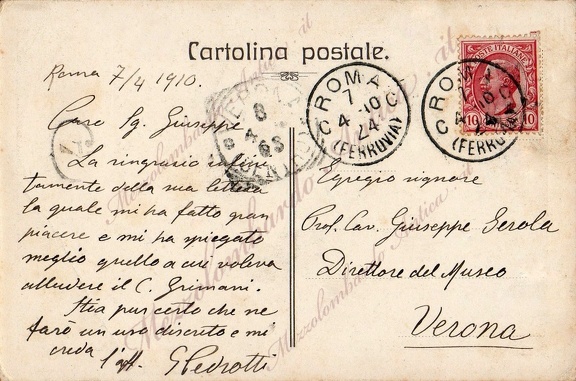 Cartolina postale.
Roma 7/4 1910.
Caro Sg. Giuseppe
La ringrazio infini
tamente della sua lettera
la quale mi ha fatto gran
piacere e mi ha spiegato
meglio quello a cui voleva
alludere il C. Grimani.
Stia pur certo che ne
farò un uso discreto e mi
creda l'aff. G Pedrotti
ROMA
7
4 10
24
(FERROVIA)
ROMA
(FERROVIA)
POSTE ITALIANE
10 10
VERONA
8
4
Egregio signore
Prof. Cav. Giuseppe Gerola
Direttore del Museo
Verona
Mezzolombardo
Mezzolombardo Antica it